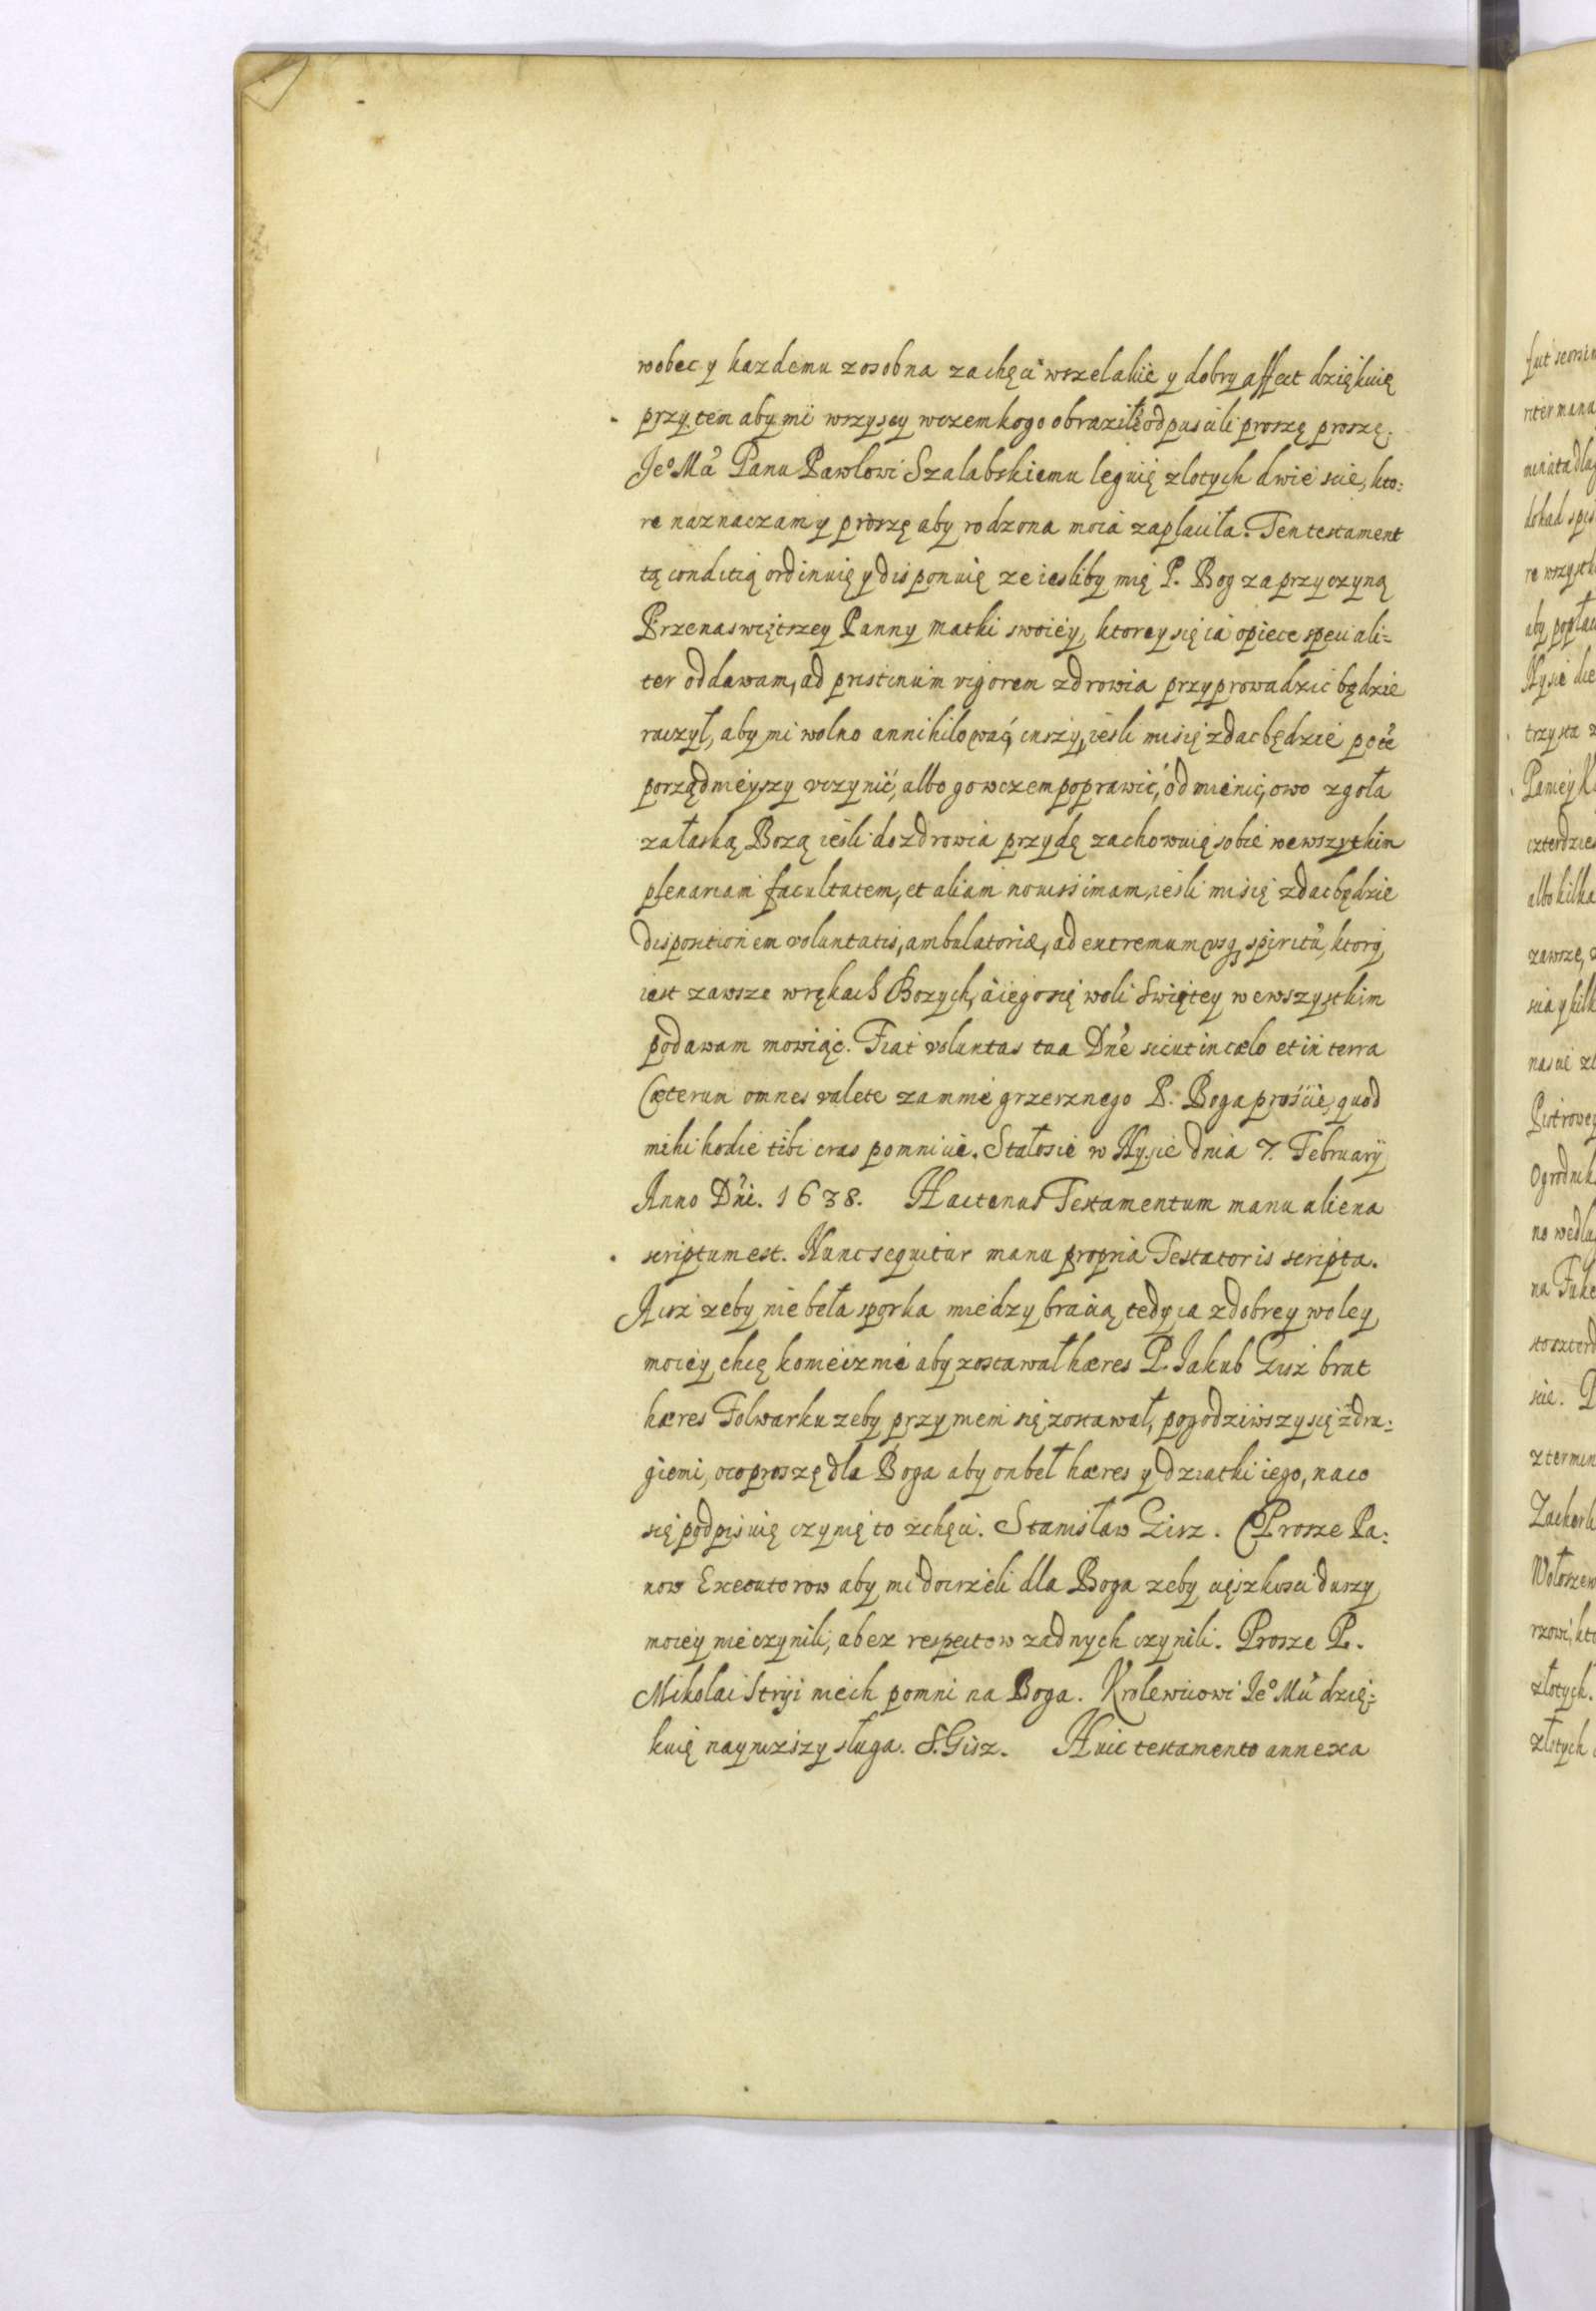 wobec y kazdemu zosobna za chęci wszelakie y dobry affect dziękuię
przy tem aby mi wszyscy wczem kogo obraził odpuscili proszę proszę.
Je⁰ Mći Panu Pawłowi Szalabskiemu leguię zlotych dwie scie, kto:
re naznaczam y proszę aby rodzona moia zaplaciła. Ten testament
tą conditią ordinuię y disponuię ze iesliby mię P. Bog za przyczyną
Przenaswiętszey Panny Matki swoiey, ktorey się ia opiece speciali=
ter oddawam, ad pristinum vigorem zdrowia przyprowadzic będzie
raczył, aby mi wolno annihilować, inszy, iesli mi się zdac będzie
porządnieyszy vczynić, albo go wczem poprawić, odmienić, owo zgoła
za łaską Bozą iesli do zdrowia przydę zachowuię sobie wewszytkim
plenariam facultatem, et aliam nouissimam, iesli mi się zdac będzie
dispositionem voluntatis, ambulatoriæ, ad extremum vsq3 spiritũ, ktory
iest zawsze wrękach Bozych, a iego się woli Swiętey wewszystkim
podawam mowiąc. Fiat voluntas tua Dne sicut in cælo et in terra
Cæterum omnes valete za mnie grzesznego P. Boga proście, quod
mihi hodie tibi cras pomnicie. Stało sie w Nysie dnia 7. February
Anno Dni. 1638. Hactenus Testamentum manu aliena
scriptum est. Nunc sequitur manu propria Testatoris scripta.
Acsz zeby nie beła sporka miedzy bracią, tedy ia zdobrey woley
moiey chcę koniecznie aby zostawał hæres P. Jakub Gisz brat
hæres Folwarku zeby przy niem się zostawał, pogodziwszy się zdru:
giemi, oco proszę dla Boga aby on beł hæres y dziatki iego, naco
się podpisuię czynię to zchęci. Stanisław Gisz. Prosze Pa:
now Executorow aby mi dotrzeli dla Boga zeby cięszkosci duszy
moiey nie czynili, a bez respectow zadnych czynili. Prosze P.
Mikolai Stryi niech pomni na Boga. Krolewicowi Je⁰ Mći dzię:
kuię naynizszy sługa. S. Gisz. Huic testamento annexa